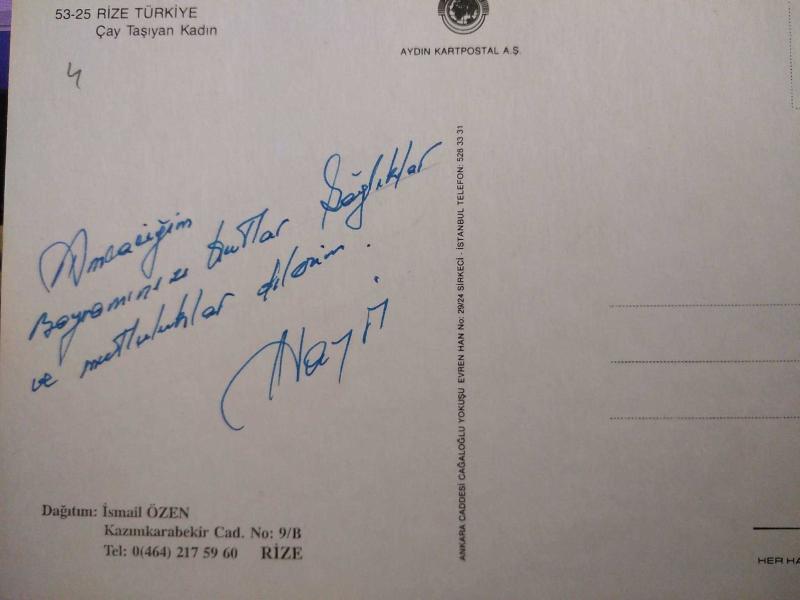 53-25 RİZE TÜRKİYE
Çay Taşıyan Kadın
AYDIN KARTPOSTAL A.Ş.
4
Amcacığım
Bayramınızı kutlar Sağlıklar
ve mutluluklar dilerim.
Dağıtım: İsmail ÖZEN
Kazımkarabekir Cad. No: 9/B
Tel: 0(464) 217 59 60 RİZE
ANKARA CADDESİ CAĞALOĞLU YOKUŞU EVREN HAN No: 29/24 SİRKECİ - İSTANBUL TELEFON: 528 33 31
HER